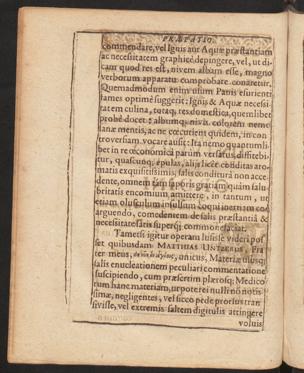 PRÆFATIO.
commendare, vel Ignis aut Aquæ præstantiam
ac necessitatem graphicè depingere, vel, ut di-
cam quod res est, nivem albam esse, magno
verborum apparatu comprobare conaretur.
Quemadmodum enim usum Panis esurienti
fames optimè suggerit: Ignis & Aquæ necessi-
tatem culina, totaq; res domestica, quemlibet
probè docet: albumq; nivis colorem nemo
sanæ mentis, ac ne cœcutiens quidem, in con-
troversiam vocare ausit: Ita nemo quantumli-
bet in re œconomicâ parùm versatus, diffitebi-
tur, quascunq; epulas, aliàs licet conditas aro-
matis exquisitissimis, salis conditurâ non acce-
dente, omnem tam saporis gratiam quàm salu-
britatis encomium amittere, in tantum, ut
etiam olusculum insulsum coqui inertiam co-
arguendo, comedentem de salis præstantiâ &
necessitate satis superq; commonefaciat.
Tametsi igitur operam lusisse videri pos-
set quibusdam MATTHIAS Fra-
ter meus, unicus, Materiæ
salis enucleationem peculiari commentatione
suscipiendo, cum præsertim plærosq; Medico-
rum hanc materiam, utpote rei nulli nō notis-
simæ, negligentes, vel sicco pede prorsus tran-
sivisse, vel extremis saltem digitulis attingere
voluis